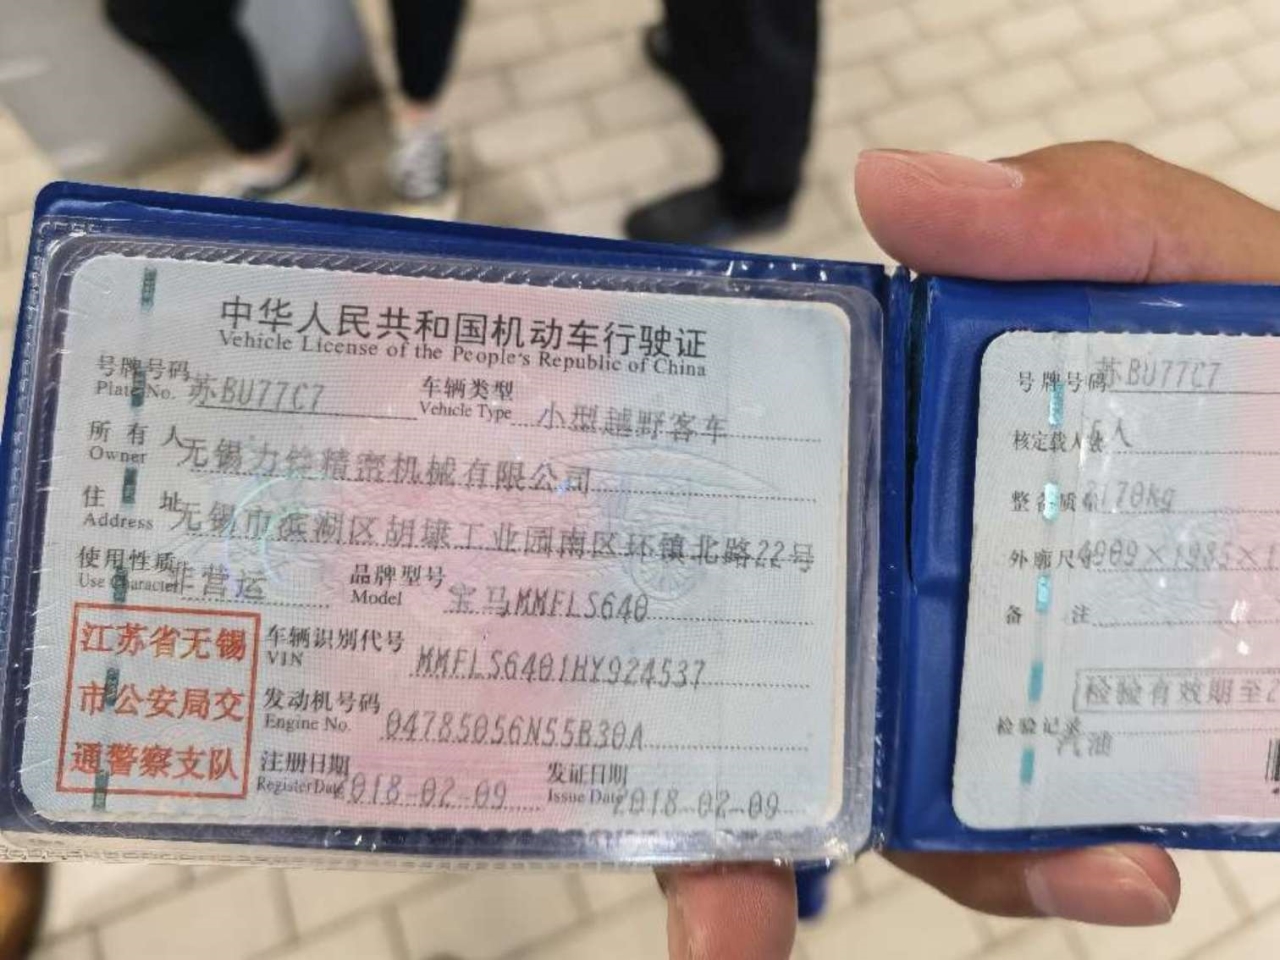 中华人民共和国机动车行驶证
Vehicle License of the People's Republic of China
号牌号码 苏BU77C7 车辆类型 小型越野客车
Plate No. Vehicle Type
所有人 无锡力 精密机械有限公司
Owner
住址 无锡市滨湖区胡埭工业园南区环镇北路22号
Address
使用性质 非营运 品牌型号 宝马MMFLS640
Use Character Model
江苏省无锡
市公安局交
通警察支队
车辆识别代号 MMFLS6401HY924537
VIN
发动机号码 04785056N55B30A
Engine No.
注册日期 2018-02-09 发证日期 2018-02-09
Register Date Issue Date
号牌号码 苏BU77C7
核定载人数 5人
整备质量 2170kg
外廓尺 4909×1985×1
备注
检验有效期至2
检验记录
汽油